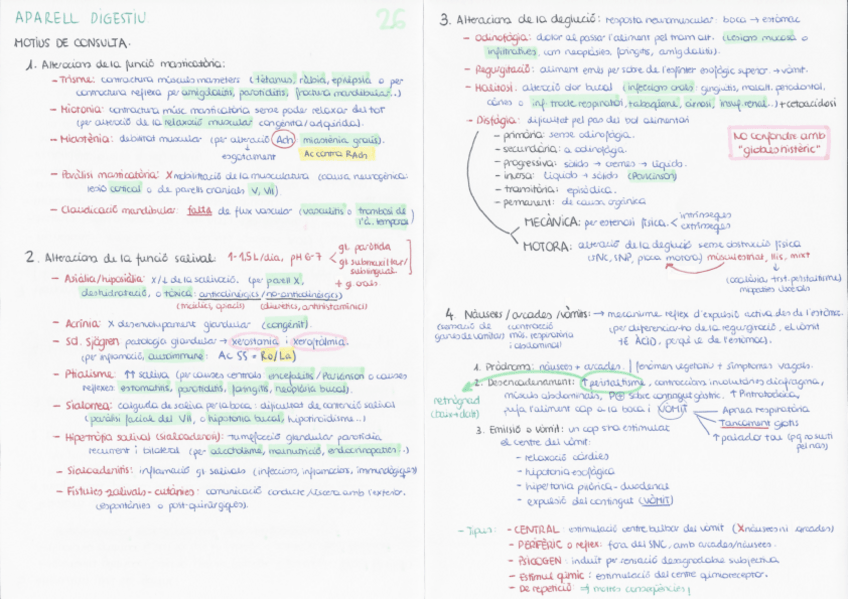 APARELL DIGESTIU
26
MOTIUS DE CONSULTA.
1. Alteracions de la funció masticatòria:
- Trisme: contractura músculs maseters (tètanus, ràbia, epilèpsia o per
contractura reflexa per amigdalitis, parotiditis, fractura mandibular...)
- Micrognia: contractura músc. masticatòria sense poder relaxar del tot
(per alteració de la relaxació muscular congènita/adquirida).
- Miastènia: debilitat muscular (per alteració Ach miastènia gravis).
esgotament
Ac contra RAch
- Paràlisi masticatòria: X mobilització de la musculatura (causa neurogènica:
lesió cortical o de parells cranials V, VII).
- Claudicació mandibular: falta de flux vascular (vasculitis o trombosi de
l'a. temporal)
2. Alteracions de la funció salival: 1-1,5L/dia, pH 6-7
gl. paròtida
gl. submaxil·lar/
sublingual
+ gl orals
- Asiàlia/hiposiàlia: X/↓ de la salivació. (per parell X,
deshidratació, o tòxica: anticolinèrgics/no-anticolinèrgics)
(diürètics, antihistamínics)
- Acrínia: X desenvolupament glandular (congènit)
- Sd. Sjögren patologia glandular → xerostomia i xeroftalmia.
(per inflamació, autoimmune: Ac SS = Ro/La)
- Ptialisme: ↑↑ saliva (per causes centrals: encefalitis/Parkinson o causes
reflexes estomatitis, parotiditis, faringitis, neoplàsia bucal).
- Sialorrea: caiguda de saliva per la boca: dificultat de contenció salival
(paràlisi facial del VII, o hipotonia bucal, hipotiroïdisme...)
- Hipertròfia salival (sialoadenosi): tumefacció glandular paròtida
recurrent i bilateral (per alcoholisme, malnutrició, endocrinopaties...)
- Sialoadenitis: inflamació gl salivals (infeccions, inflamacions, immunològiques)
- Fístules salivals-cutànies: comunicació conducte/úlcera amb l'exterior.
(espontànies o post-quirúrgiques).
3. Alteracions de la deglució: resposta neuromuscular: boca → estómac
- Odinofàgia: dolor al passar l'aliment pel tram alt. (lesions mucosa o
infiltratives com neoplàsies, faringitis, amigdalitis).
- Regurgitació: aliment emès per sobre de l'esfínter esofàgic superior. → vòmit.
- Halitosi: alteració olor bucal (infeccions orals: gingivitis, malalt. periodontal,
càries o inf. tracte respiratori, tabaquisme, cirrosi, insuf. renal..) + cetoacidosi
- Disfàgia: dificultat pel pas del bol alimentari
- primària: sense odinofàgia.
- secundària: a odinofàgia.
- progressiva: sòlids → cremes → líquids.
- inversa: líquids → sòlids (Parkinson)
- transitòria: episòdica.
- permanent: de causa orgànica
NO confondre amb
"globus histèric"
MECÀNICA: per estenosi física. intrínseques
extrínseques
MOTORA: alteració de la deglució sense obstrucció física
(SNC, SNP, placa motora) múscul estriat, llis, mixt
miopaties viscerals
4. Nàusees/arcades/vòmits: → mecanisme reflex d'expulsió activa des de l'estómac.
sensació de
ganes de vomitar
contracció
mús. respiratòria
i abdominal
(per diferenciar-ho de la regurgitació, el vòmit
té ÀCID, perquè ve de l'estómac).
1. Pròdroms: nàusees + arcades. (fenòmen vegetatiu + símptomes vagals.
2. Desencadenament: ↑ peristaltisme, contraccions involuntàries diafragma,
músculs abdominals, P⊕ sobre contingut gàstric. ↑ P intratoràcica,
puja l'aliment cap a la boca i VÒMIT
retrògrad
(baix→dalt)
Apnea respiratòria
Tancament glotis
↑ paladar tou (pq no surti
pel nas)
3. Emissió o vòmit: un cop s'ha estimulat
el centre del vòmit:
- relaxació càrdies
- hipotonia esofàgica
- hipertonia pilòrica-duodenal
- expulsió del contingut (VÒMIT)
- Tipus: - CENTRAL: estimulació centre bulbar del vòmit (X nàusees ni arcades)
- PERIFÈRIC o reflex: fora del SNC, amb arcades/nàusees.
- PSICOGEN: induït per sensació desagradable subjectiva.
- Estímul químic: estimulació del centre quimioreceptor.
- De repetició